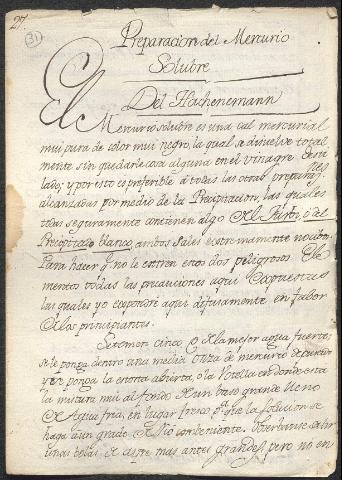 27.
(31)
Preparacion del Mercurio
Solubre
Del Hachenemann
El Mercurio solubre es una cal mercurial
mui pura de color mui negro, la qual se disuelve total
mente sin quedarle cosa alguna en el vinagre desti
lado; y por esto es preferible á todas las otras prepara
alcanzadas por medio de la Precipitacion, las quales
todas seguramente contienen algo del Turbit, ó del
Precipitado blanco, ambos sales extremamente nocibos.
Para hacer q.e no le entren estos dos peligrosos Ele
mentos todas las precauciones aqui expuestas
las quales yo expondré aqui difusamente en fabor
de los principiantes.
Se toman cinco de la mejor agua fuerte;
se le ponga dentro una media onza de mercurio depurado
y se ponga la estorta abierta, o la Votella en donde esta
la mistura mui al fondo de un baso grande lleno
de Agua fria, en lugar fresco, p.a que la solucion se
haga a un grado de frio combeniente.
unas belas de aspre mas antes grandes, pero no en